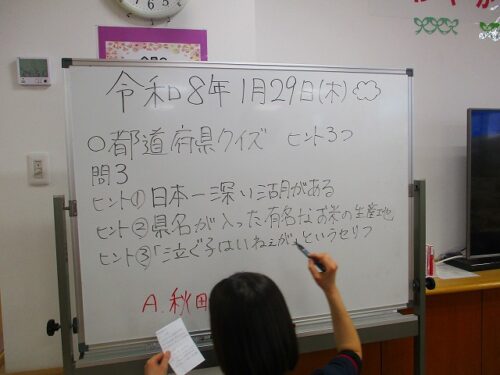 令和8年1月29日(木)
○都道府県クイズ ヒント3つ
問3
ヒント①日本一深い湖がある
ヒント②県名が入った有名なお米の生産地
ヒント③「泣ぐ子はいねぇが」というセリフ
A.秋田